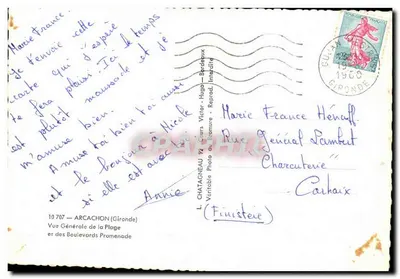 Marie France.
Je t'envoie cette
carte qui j'espère
te fera plaisir. Ici le temps
est plutôt maussade et je
m'amuse bien.
Amuse toi bien toi aussi
et le bonjour à Nicole
si elle est avec
Annie
10 707 — ARCACHON (Gironde)
Vue Générale de la Plage
et des Boulevards Promenade
L. CHATAGNEAU Cours Victor-Hugo - Bordeaux
Véritable Photo au Bromure - Reprod. Interdite
1960
GIRONDE
Marie France Hénaff
Rue Général Lambert
Charcuterie
Carhaix
(Finistère)